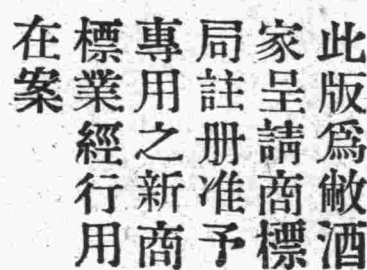 此版爲敝酒
家呈請商標
局註册准予
專用之新商
標業經行用
在案